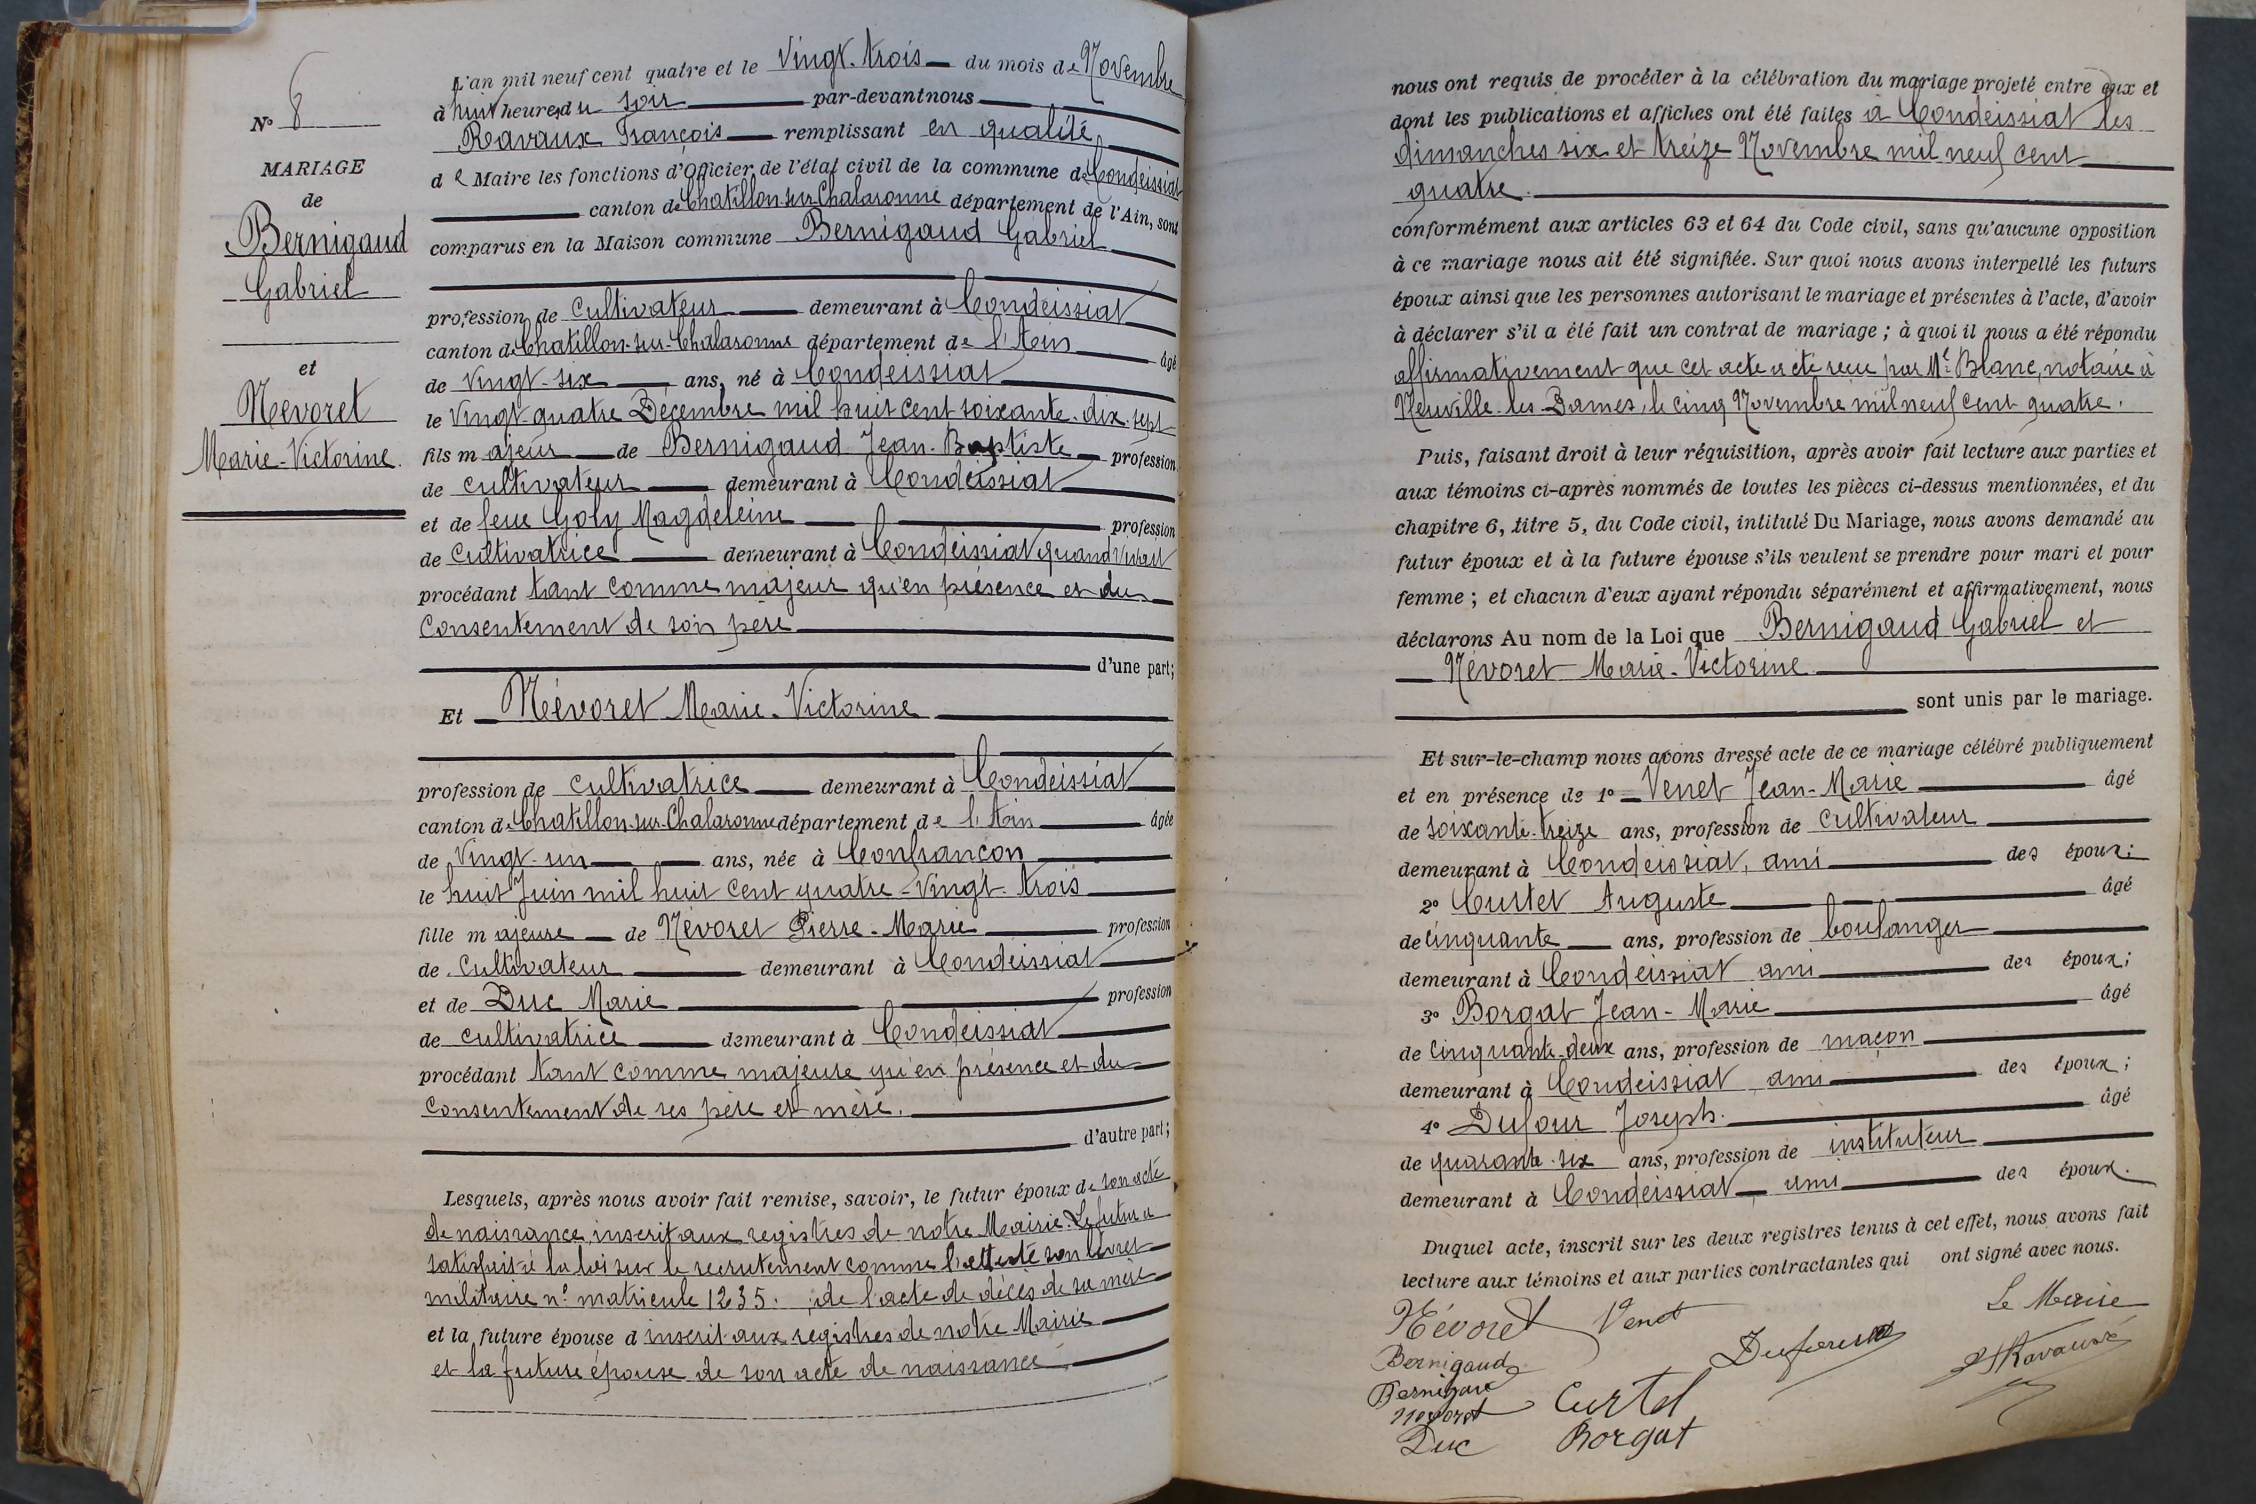 N° 8
MARIAGE
de
Bernigaud
Gabriel
et
Nevoret
Marie-Victorine.
L'an mil neuf cent quatre et le Vingt-trois du mois de Novembre
à huit heures du soir par-devant nous
Ravaux François remplissant en qualité
de Maire les fonctions d'Officier de l'état civil de la commune de Condeissiat
canton de Chatillon-sur-Chalaronne département de l'Ain, sont
comparus en la Maison commune Bernigaud Gabriel
profession de Cultivateur demeurant à Condeissiat
canton de Chatillon-sur-Chalaronne département de l'Ain âgé
de vingt-six ans, né à Condeissiat
le Vingt-quatre Décembre mil huit cent soixante-dix-sept
fils majeur de Bernigaud Jean-Baptiste profession
de cultivateur demeurant à Condeissiat
et de feue Goly Magdeleine profession
de Cultivatrice demeurant à Condeissiat quand vivait
procédant tant comme majeur qu'en présence et du
Consentement de son père
d'une part;
Et Névoret Marie-Victorine
profession de cultivatrice demeurant à Condeissiat
canton de Chatillon-sur-Chalaronne département de l'Ain âgée
de Vingt-un ans, née à Confrançon
le huit Juin mil huit cent quatre-vingt-trois
fille majeure de Névoret Pierre-Marie profession
de Cultivateur demeurant à Condeissiat
et de Duc Marie profession
de cultivatrice demeurant à Condeissiat
procédant tant comme majeure qu'en présence et du
Consentement de ses père et mère.
d'autre part;
Lesquels, après nous avoir fait remise, savoir, le futur époux de son acte
de naissance, inscrit aux registres de notre Mairie. Le futur a
satisfait à la loi sur le recrutement comme l'atteste son livret
militaire n° matricule 1235. ; de l'acte de décès de sa mère
et la future épouse d inscrit aux registres de notre Mairie
et la future épouse de son acte de naissance.
nous ont requis de procéder à la célébration du mariage projeté entre eux et
dont les publications et affiches ont été faites à Condeissiat les
dimanches six et treize Novembre mil neuf cent
quatre.
conformément aux articles 63 et 64 du Code civil, sans qu'aucune opposition
à ce mariage nous ait été signifiée. Sur quoi nous avons interpellé les futurs
époux ainsi que les personnes autorisant le mariage et présentes à l'acte, d'avoir
à déclarer s'il a été fait un contrat de mariage ; à quoi il nous a été répondu
affirmativement que cet acte a été reçu par Me Blanc, notaire à
Neuville-les-Dames, le cinq Novembre mil neuf cent quatre.
Puis, faisant droit à leur réquisition, après avoir fait lecture aux parties et
aux témoins ci-après nommés de toutes les pièces ci-dessus mentionnées, et du
chapitre 6, titre 5, du Code civil, intitulé Du Mariage, nous avons demandé au
futur époux et à la future épouse s'ils veulent se prendre pour mari et pour
femme ; et chacun d'eux ayant répondu séparément et affirmativement, nous
déclarons Au nom de la Loi que Bernigaud Gabriel et
Névoret Marie-Victorine
sont unis par le mariage.
Et sur-le-champ nous avons dressé acte de ce mariage célébré publiquement
et en présence de 1° Venet Jean-Marie âgé
de soixante-treize ans, profession de cultivateur
demeurant à Condeissiat, ami des époux;
2° Curtet Auguste âgé
de cinquante ans, profession de boulanger
demeurant à Condeissiat ami des époux;
3° Borgat Jean-Marie âgé
de cinquante-deux ans, profession de maçon
demeurant à Condeissiat ami des époux;
4° Dufour Joseph. âgé
de quarante-six ans, profession de instituteur
demeurant à Condeissiat ami des époux.
Duquel acte, inscrit sur les deux registres tenus à cet effet, nous avons fait
lecture aux témoins et aux parties contractantes qui ont signé avec nous.
Névoret Venet Le Maire
Bernigaud Dufour Ravaux
Bernigaud
Nevoret Curtet
Duc Borgat